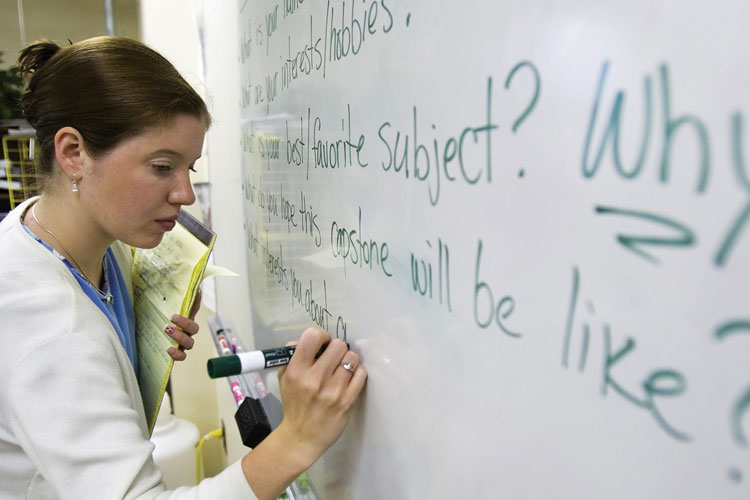 What is your
What are your interests/hobbies.
What is your best/favorite subject? Why?
What do you hope this capstone will be like?
What interests you about